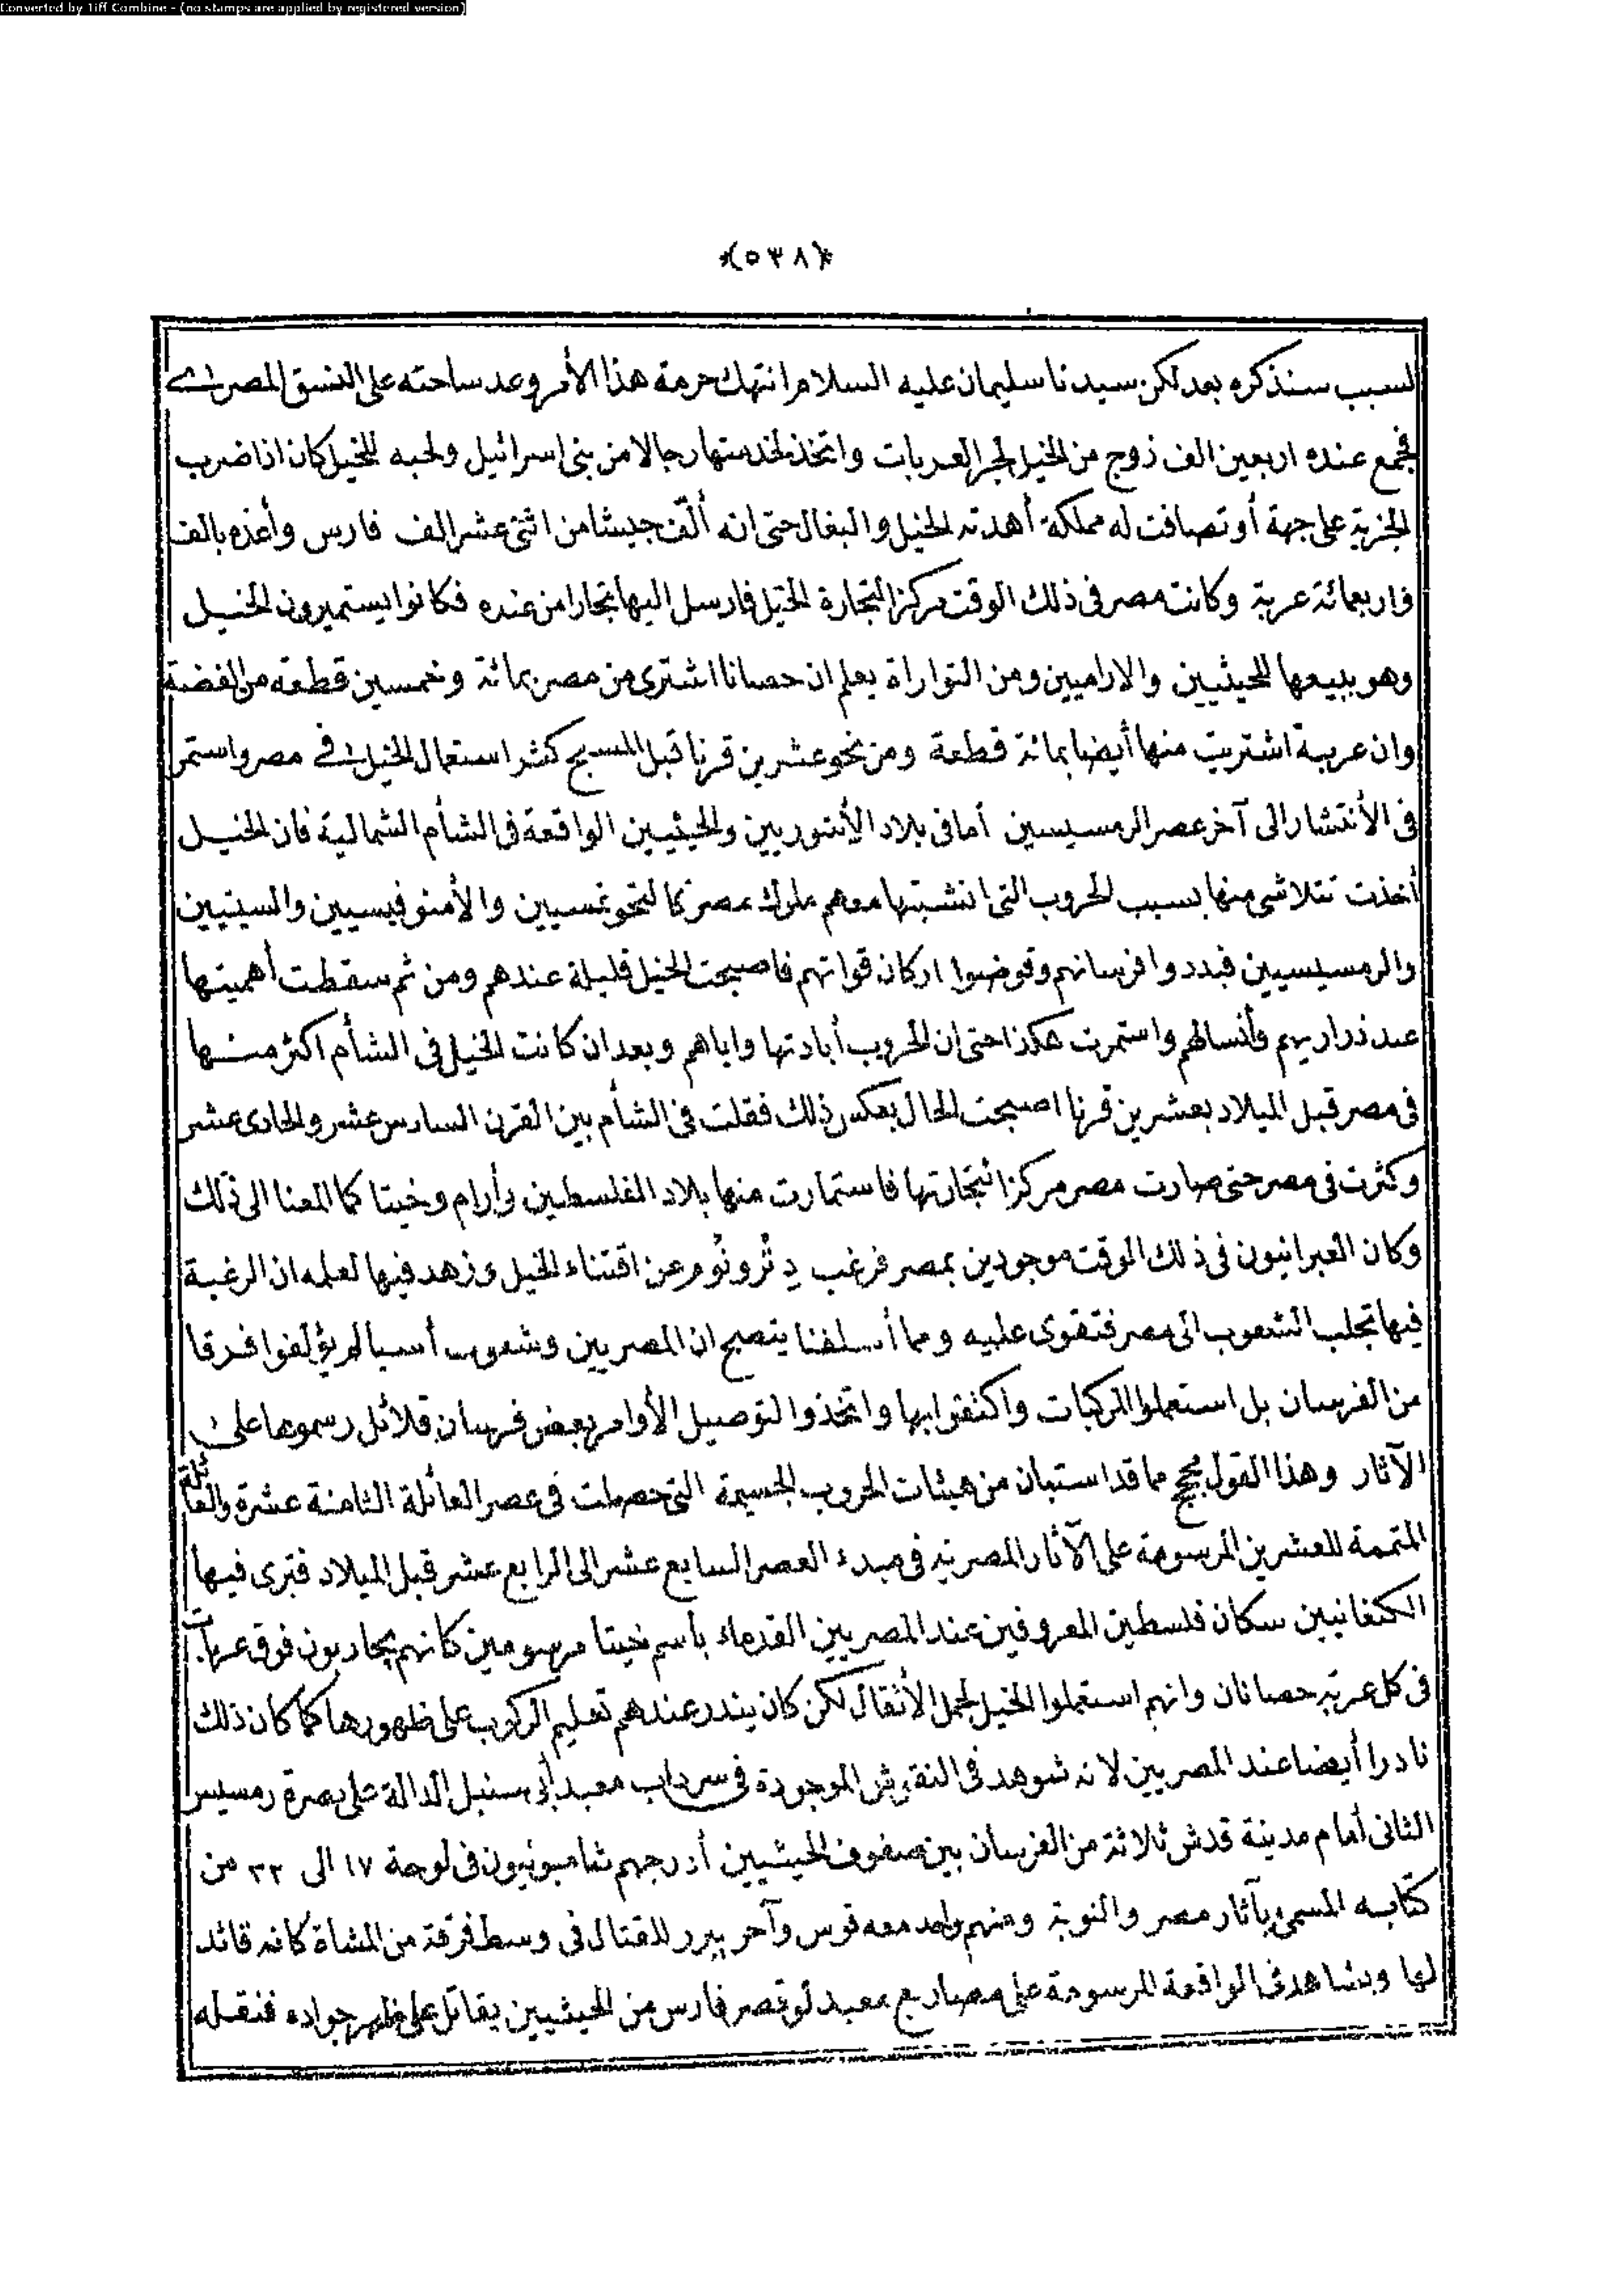 Converted by Tiff Combine - (no stamps are applied by registered version)
*(٥٣٨)*
لسبب سنذكره بعد لكن سيدنا سليمان عليه السلام انتهك حرمة هذا الأمر وعد ساحته على النسق المصرى
فجمع عنده اربعين الف زوج من الخيل لجر العربات واتخذ لخدمتها رجالا من بنى اسرائيل ولحبه للخيل كان اذا ضرب
الجزية على جهة أو تصافت له مملكة أهدته الخيل والبغال حتى انه ألّف جيشا من اثنى عشر الف فارس وأعذه بالف
واربعمائة عربة وكانت مصر فى ذلك الوقت مركز التجارة الخيل فارسل اليها تجارا من عنده فكانوا يستميرون الخيل
وهو يبيعها للحيثيين والاراميين ومن التواراة يعلم ان حصانا اشترى من مصر بمائة وخمسين قطعة من الفضة
وان عربة اشتريت منها أيضا بمائة قطعة ومن نحو عشرين قرنا قبل المسيح كثر استعمال الخيل فى مصر واستمر
فى الأنتشار الى آخر عصر الرمسيسين أما فى بلاد الأشوريين والحيثيين الواقعة فى الشأم الشمالية فان الخيل
أخذت تتلاشى منها بسبب الحروب التى انشبتها معهم ملوك مصر كالتحوتمسيين والأمنوفيسيين والسيتيين
والرمسيسيين فبددوا فرسانهم وقوضوا اركان قواتهم فاصبحت الخيل قليلة عندهم ومن ثم سقطت أهميتها
عند ذراريهم وأنسالهم واستمرت هكذا حتى ان الحروب أبادتها واياهم وبعد ان كانت الخيل فى الشأم اكثر منها
فى مصر قبل الميلاد بعشرين قرنا اصبحت الحال بعكس ذلك فقلت فى الشأم بين القرن السادس عشر والحادى عشر
وكثرت فى مصر حتى صارت مصر مركزا لتجارتها فاستمارت منها بلاد الفلسطين وأرام وخيتا كما المعنا الى ذلك
وكان العبرانيون فى ذلك الوقت موجودين بمصر فرغب دِثُرونُوم عن اقتناء الخيل وزهد فيها لعلمه ان الرغبة
فيها تجلب الشعوب الى مصر فتقوى عليه ومما أسلفنا يتضح ان المصريين وشعوب أسيا لم يؤلفوا فرقا
من الفرسان بل استعملوا المركبات واكتفوا بها واتخذوا لتوصيل الأوامر بعض فرسان قلائل رسموها على
الآثار وهذا القول صحيح مما قد استبان من هيئات الحروب الجسيمة التى حصلت فى عصر العائلة الثامنة عشرة والعائلة
المتممة للعشرين المرسومة على الآثار المصرية فى مبدء العصر السابع عشر الى الرابع عشر قبل الميلاد فترى فيها
الكنعانيين سكان فلسطين المعروفين عند المصريين القدماء باسم خيتا مرسومين كانهم يحاربون فوق عربات
فى كل عربة حصانان وانهم استعملوا الخيل لحمل الأثقال لكن كان يندر عندهم تعليم الركوب على ظهورها كما كان ذلك
نادرا أيضا عند المصريين لانه شوهد فى النقوش الموجودة فى سرداب معبد أبى سنبل الدالة على نصرة رمسيس
الثانى أمام مدينة قدش ثلاثة من الفرسان بين صفوف الحيثيين أدرجهم شامبوليون فى لوحة ١٧ الى ٣٢ من
كتابه المسمى بآثار مصر والنوبة ومنهم واحد معه قوس وآخر يبرر للقتال فى وسط فرقة من المشاة كانه قائد
لها ويشاهد فى الواقعة المرسومة على مصاريع معبد لوقصر فارس من الحيثيين يقاتل على ظهر جواده فنقله